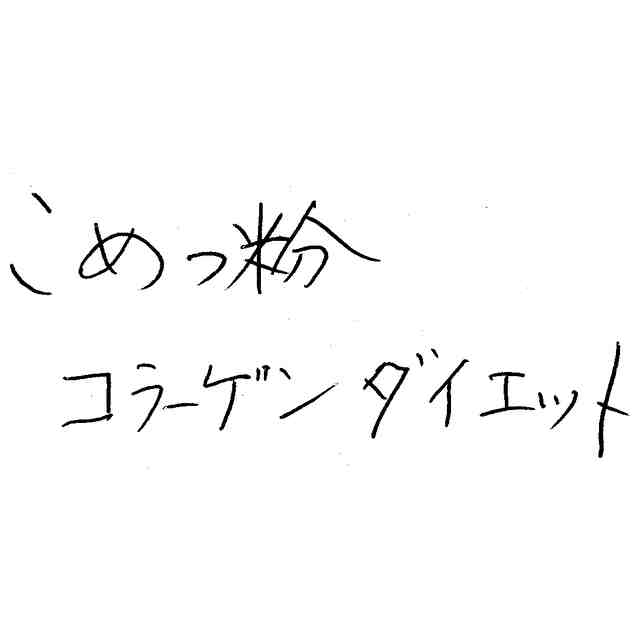 こめっ粉
コラーゲンダイエット